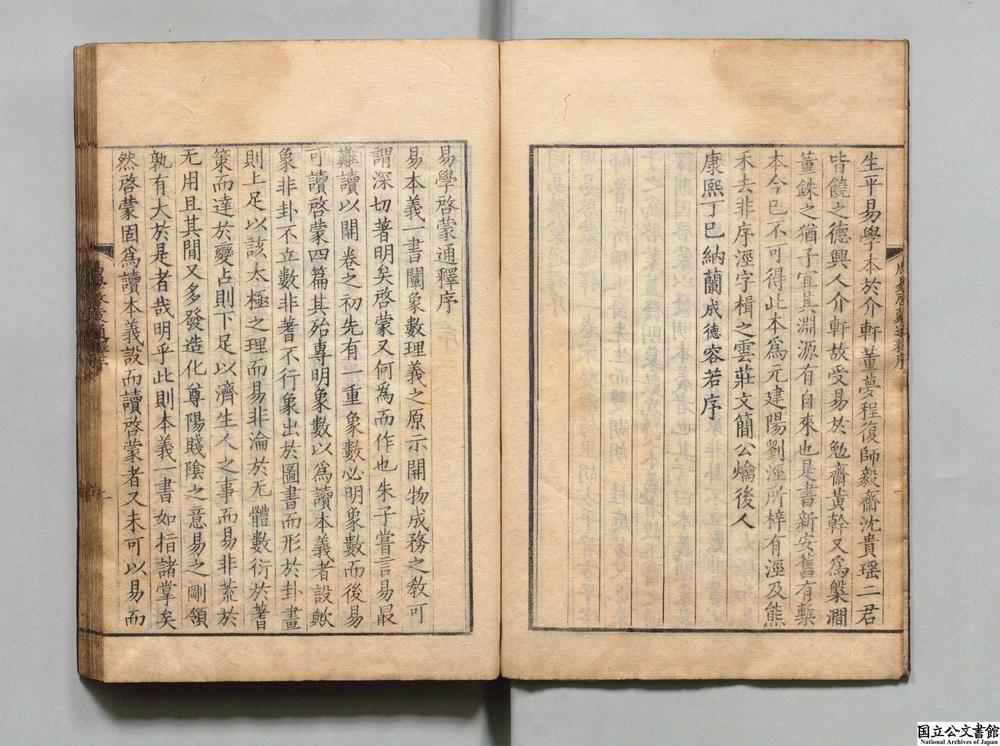 生平易學本於介軒董夢程復師毅齋沈貴瑶二君
皆饒之德興人介軒故受易於勉齋黃幹又為槃澗
董銖之猶子宜其淵源有自來也是書新安舊有槧
本今已不可得此本為元建陽劉涇所梓有涇及熊
禾去非序涇字楫之雲莊文簡公爚後人
康熙丁巳納蘭成德容若序
易學啓蒙通釋序
易本義一書闡象數理義之原示開物成務之教可
謂深切著明矣啓蒙又何為而作也朱子嘗言易最
難讀以開卷之初先有一重象數必明象數而後易
可讀啓蒙四篇其殆專明象數以為讀本義者設歟
象非卦不立數非蓍不行象出於圖書而形於卦畫
則上足以該太極之理而易非淪於无體數衍於蓍
策而達於變占則下足以濟生人之事而易非荒於
无用且其間又多發造化尊陽賤陰之意易之剛領
孰有大於是者哉明乎此則本義一書如指諸掌矣
然啓蒙固為讀本義設而讀啓蒙者又未可以易而
国立公文書館
National Archives of Japan